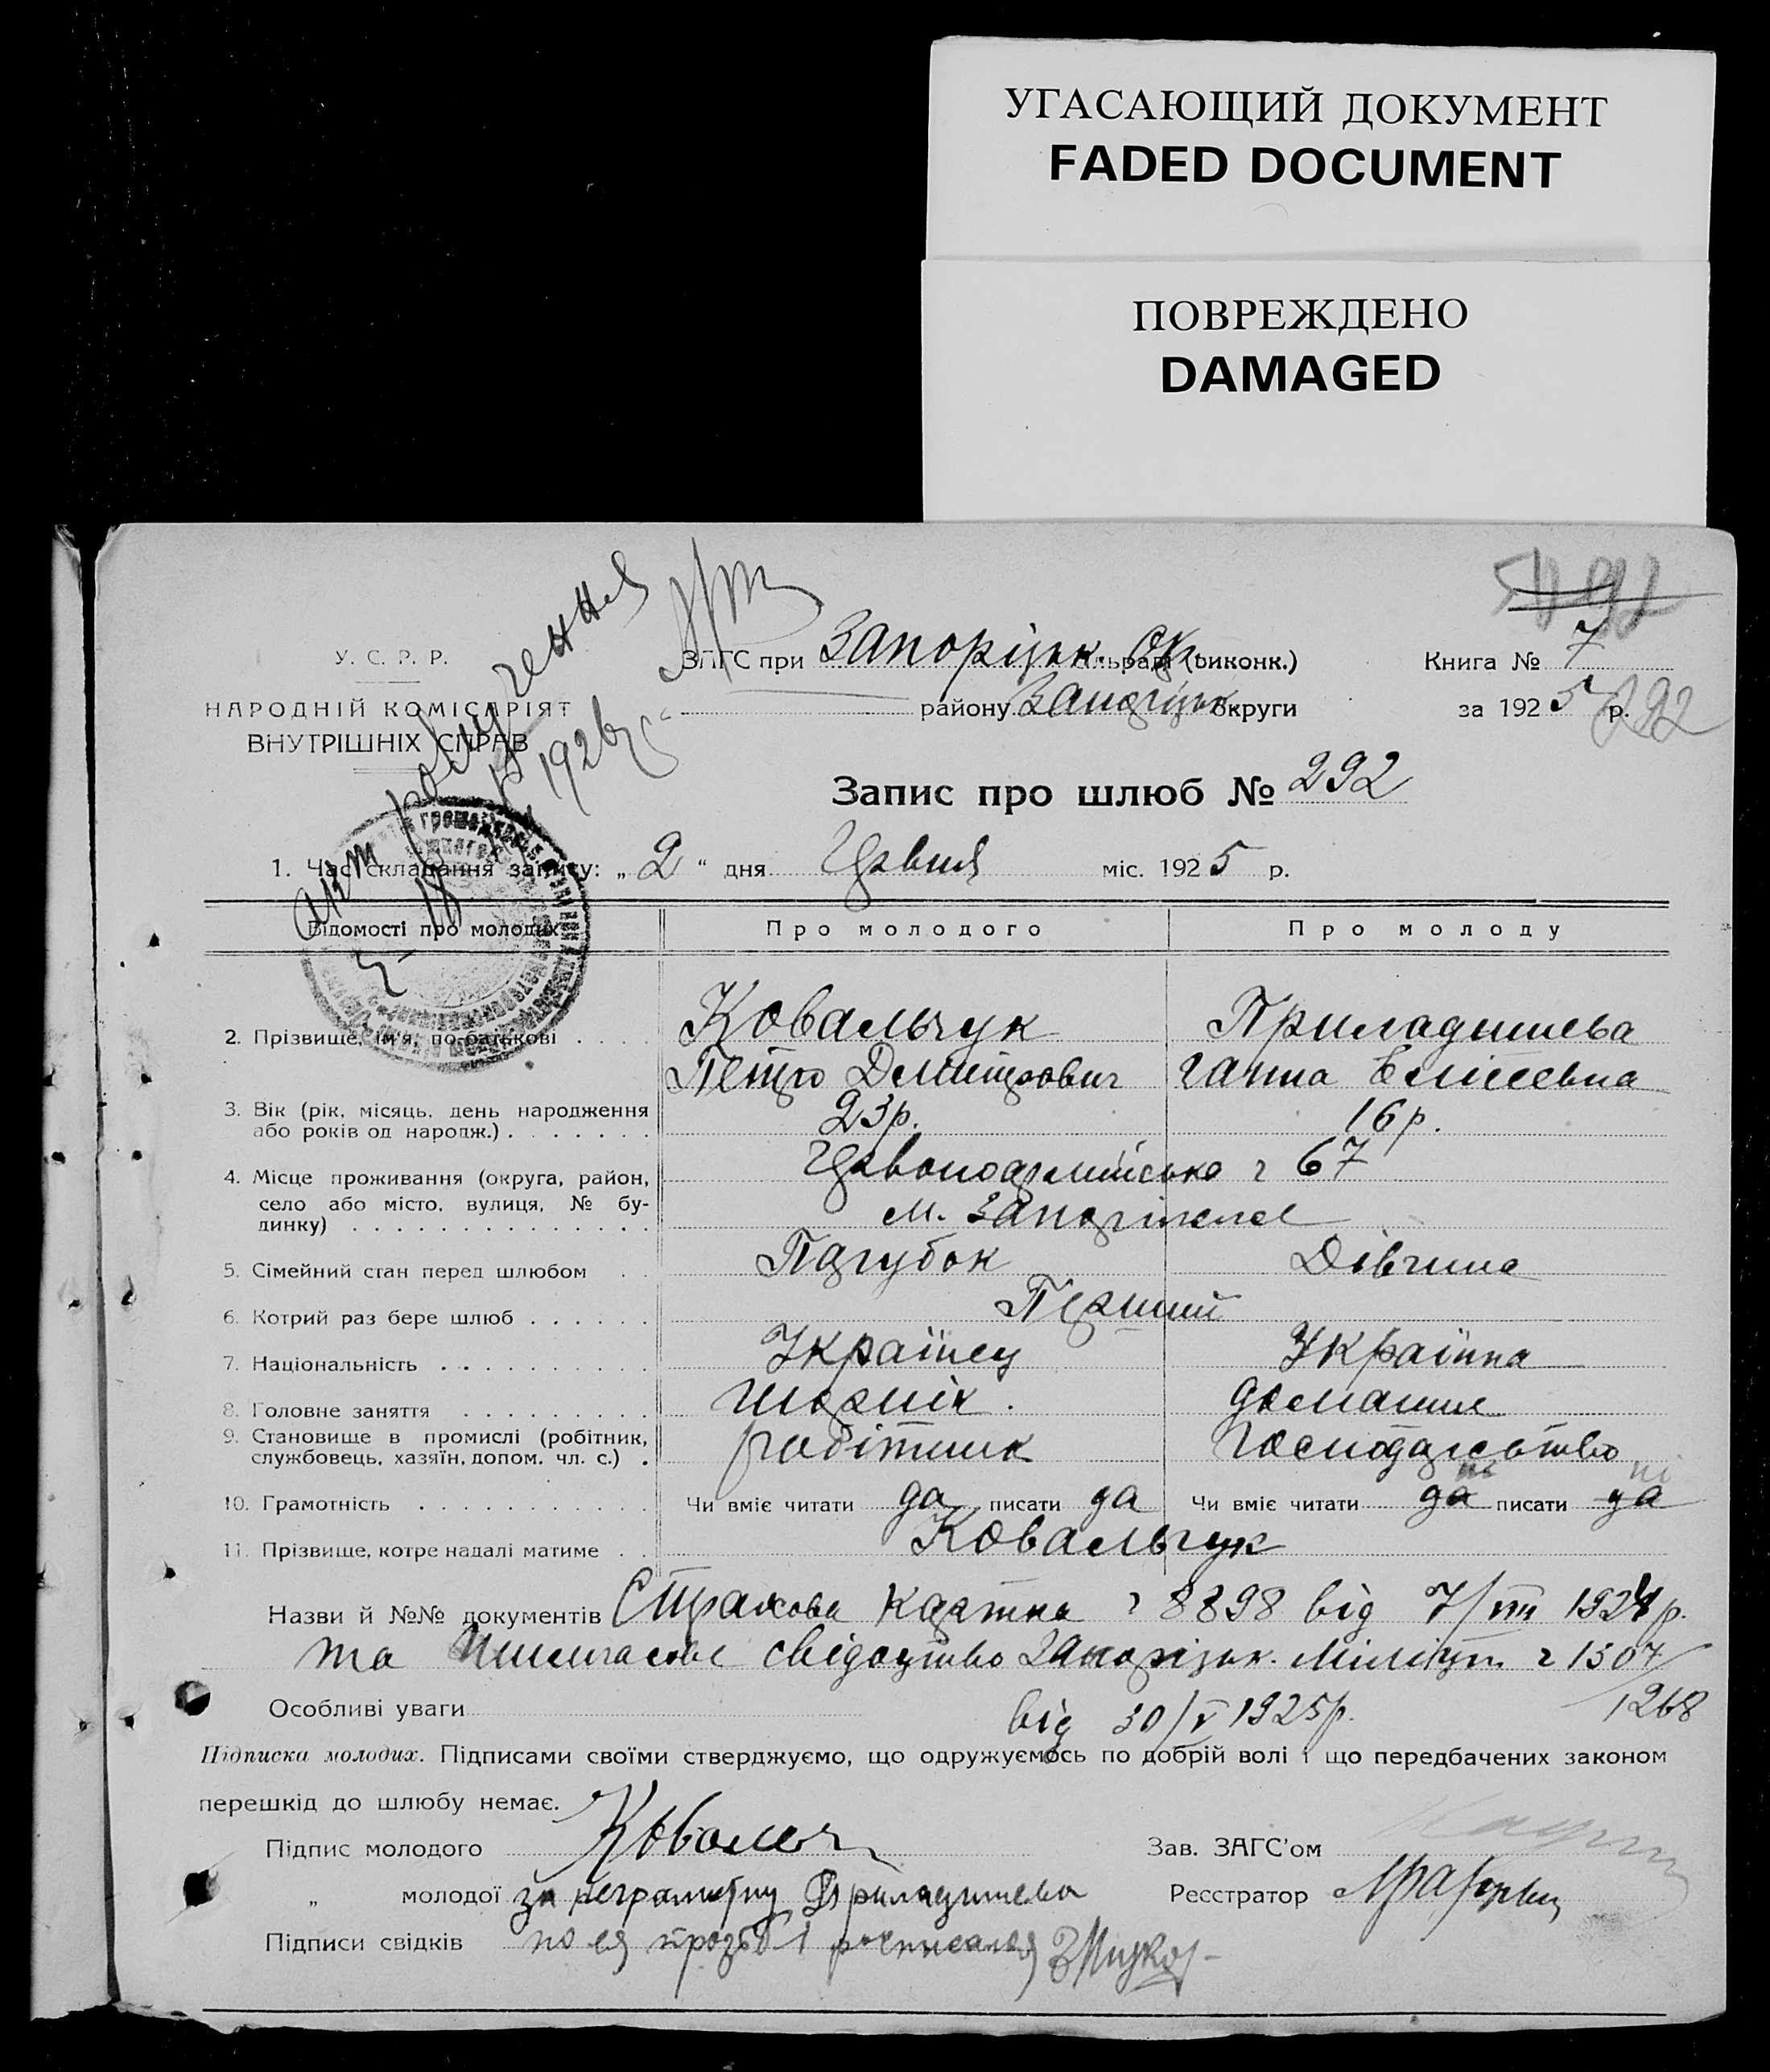 УГАСАЮЩИЙ ДОКУМЕНТ
FADED DOCUMENT
ПОВРЕЖДЕНО
DAMAGED
292
У. С. Р. Р.
НАРОДНІЙ КОМІСАРІЯТ
ВНУТРІШНІХ СПРАВ
ЗАГС при Запоріцьк. Ок. (виконк.)
району Запоріцьк. округи
Книга № 7
за 1925 р.
292
Акт розлучення
1926
Запис про шлюб № 292
1. Час складання запису: „ 2 “ дня Червня міс. 1925 р.
Відомості про молодих
Про молодого
Про молоду
2. Прізвище, ім'я, по-батькові . . . .
Ковальчук
Петро Дмитрович
Приладишева
Ганна Елісеевна
3. Вік (рік, місяць, день народження
або років од народж.) . . . . . . .
23р.
16р.
4. Місце проживання (округа, район,
село або місто, вулиця, № бу-
динку) . . . . . . . . . . . . . .
Червоноармійська ч 67
м. Запоріжжя
5. Сімейний стан перед шлюбом . .
Парубок
Дівчина
6. Котрий раз бере шлюб . . . . . .
Перший
7. Національність . . . . . . . . . .
Українец
Українка
8. Головне заняття . . . . . . . . .
шорнік.
домашне
9. Становище в промислі (робітник,
службовець, хазяїн, допом. чл. с.) .
робітник
господарство
10. Грамотність . . . . . . . . . . .
Чи вміє читати да писати да
Чи вміє читати да ні писати да ні
11. Прізвище, котре надалі матиме . .
Ковальчук
Назви й №№ документів Страхова картка ч 8898 від 7/VIII 1924р.
та тимчасове свідоцтво Запорізьк. Міліції ч 1307/1268
Особливі уваги від 30/V 1925р.
Підписка молодих. Підписами своїми стверджуємо, що одружуємось по добрій волі і що передбачених законом
перешкід до шлюбу немає.
Підпис молодого Ковальч
Зав. ЗАГС'ом
„ молодої за неграмотну Приладишева
Реєстратор
Підписи свідків по ея прозьбі росписался